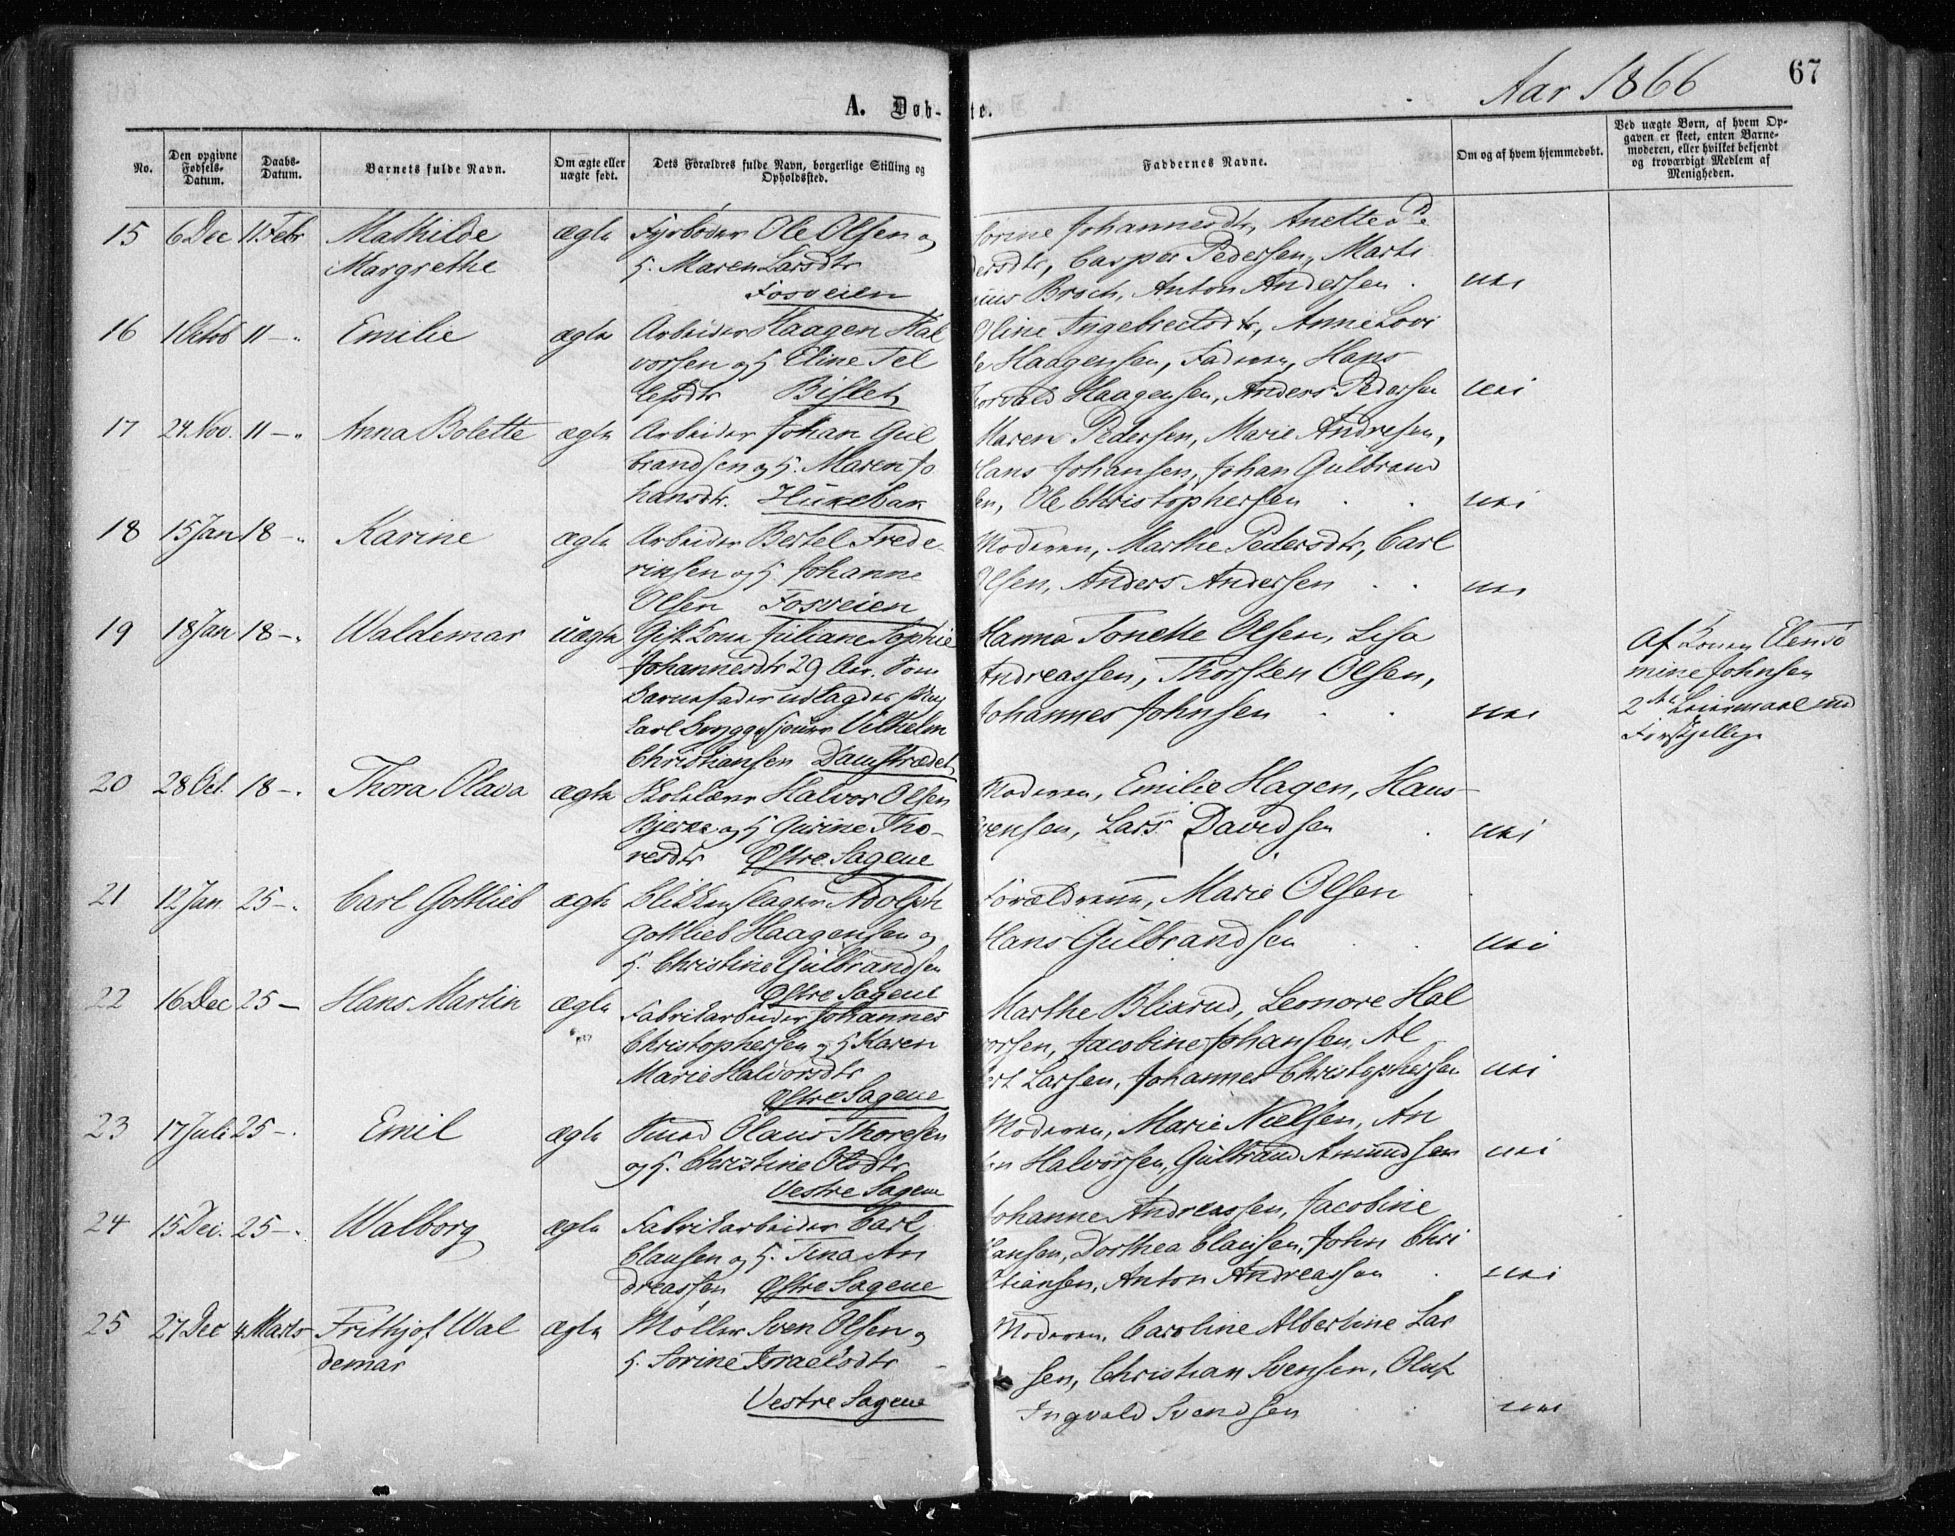 Aar 1866
67
A. Døb-
te.
No.
Den opgivne Fødsels-Datum.
Daabs-Datum.
Barnets fulde Navn.
Om ægte eller uægte født.
Dets Forældres fulde Navn, borgerlige Stilling og Opholdssted.
Faddernes Navne.
Om og af hvem hjemmedøbt.
Ved uægte Børn, af hvem Opgaven er skeet, enten Barnemoderen, eller hvilket bekjendt og troværdigt Medlem af Menigheden.
15 6 Dec 11 Febr Mathilde ægte Fyrbøder Ole Olsen og Johannesdtr, Anette Pe
Margrethe H. Maren Larsdtr dersdtr, Casper Pedersen, Marti
Fosveien nius Broch, Anton Andersen nei
16 1 Octob 11 — Emilie ægte Arbeider Haagen Hal Oline Ingebretsdtr, Anne Lovi
vorsen og H Eline Tel se Haagensen, Faderen, Hans
lefsdtr Bislet Thorvald Haagensen, Anders Pedersen nei
17 24 Nov. 11 — Anna Bolette ægte Arbeider Johan Gul Maren Pedersen, Marie Andresen,
brandsen og H. Maren Jo Hans Johansen, Johan Gulbrand
hansdtr. sen, Ole Christophersen nei
18 15 Jan 18 — Karine ægte Arbeider Bertel Frede Moderen, Marthe Pedersdtr, Carl
riksen og H Johanne Olsen, Anders Andersen
Olsen Fosveien nei
19 18 Jan 18 — Waldemar uægte Gift Kone Juliane Sophie Hanna Tonette Olsen, Lisa Af Konen
Johannesdtr 29 Aar. Som Andreassen, Thorsten Olsen, mine Johnsen
Barnefader udlagdes Johannes Johnsen nei 2det Leiermaal med
Vilhelm Forskjellige
Christiansen Damstrædet
20 28 Oct. 18 — Thora Olava ægte Skolelærer Halvor Olsen Moderen, Emilie Hagen, Hans
Bjerke og H Gurine Tho- Svensen, Lars Davidsen nei
resdtr Østre Sagene
21 12 Jan. 25 — Carl Gottlieb ægte Blikkenslager Adolph Forældrene, Marie Olsen
Gottlieb Haagensen og Hans Gulbrandsen nei
H. Christine Gulbrandsen
Østre Sagene
22 16 Dec 25 — Hans Martin ægte Fabrikarbeider Johannes Marthe Blixrud, Leonore Hal
Christophersen og H Karen vorsen, Jacobine Johansen, Al
Marie Halvorsdtr bert Larsen, Johannes Christophersen nei
Østre Sagene
23 17 Juli 25 — Emil ægte Smed Olaus Thoresen Moderen, Marie Nielsen, An
og H. Christine Olsdtr ton Halvorsen, Gulbrand Amundsen nei
Vestre Sagene
24 15 Dec. 25 — Walborg ægte Fabrikarbeider Carl Johanne Andreassen, Jacobine
Clausen og H. Tina An Hansen, Dorthea Clausen, John Chri
dreassen Østre Sagene stiansen, Anton Andreassen nei
25 27 Dec 4 Marts Frithjof Wal ægte Møller Sven Olsen og Moderen, Caroline Albertine Lar
demar H. Sorine Israelsdtr sen, Christian Svensen, Oluf
Vestre Sagene Ingvald Svendsen nei